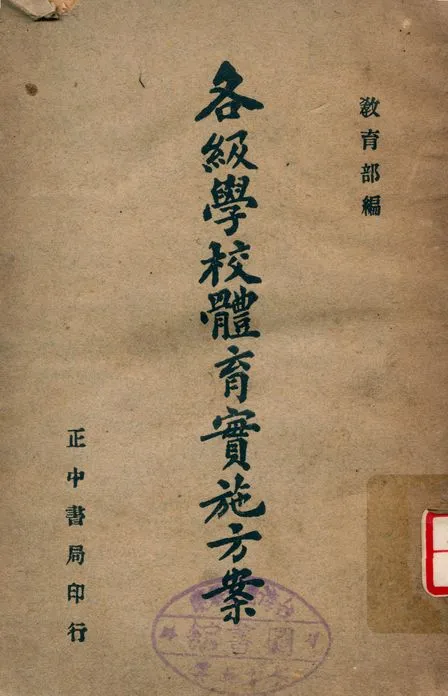 教育部編
各級學校體育實施方案
正中書局印行